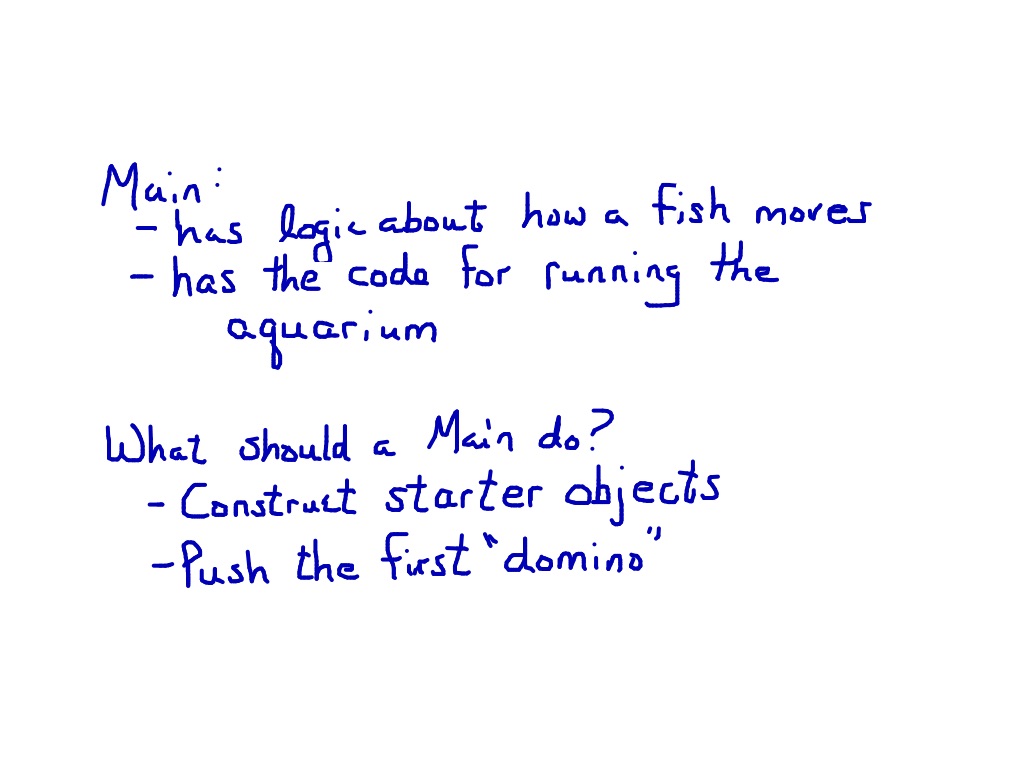 Main:
- has logic about how a fish moves
- has the code for running the
aquarium
What should a Main do?
- Construct starter objects
- Push the first "domino"